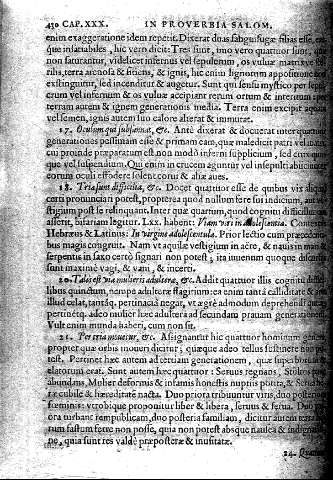 430 CAP. XXX. IN PROVERBIA SALOM.
enim exaggeratione idem repetit. Dixerat duas sanguisugæ filias esse, eas-
que insatiabiles, hic vero dicit: Tres sunt, imo vero quattuor sunt, quæ
non saturantur, videlicet infernus vel sepulcrum, os vuluæ matrix ve ste-
rilis, terra arenosa & sitiens, & ignis, hic enim lignorum appositione non
exstinguitur, sed incenditur & augetur. Sunt qui sensu mystico per sepul-
crum vel infernum & os vuluæ accipiant rerum ortum & interitum per
terram autem & ignem generationis media. Terra enim excipit aquam
vel semen, ignis autem suo calore alterat & immutat.
17. Oculum qui subsannat, &c. Ante dixerat & docuerat inter quattuor
generationes pessimam esse & primam eam, quæ maledicit patri vel matri,
cui proinde præparatum est non modò inferni supplicium, sed cuiuscun-
que vel suspendium. Qui enim in crucem aguntur vel insepulti abiiciuntur
eorum oculi effodere solent corui & aliæ aues.
18. Tria sunt difficilia, &c. Docet quattuor esse de quibus vix aliquid
certi pronunciari potest, propterea quod nullum fere sui indicium, aut ve-
stigium post se relinquant. Inter quæ quartum, quod cognitu difficilius esse
asserit, bifariam legitur. Lxx. habent: Viam viri in adolescentia. Contextus
Hebræus & Latinus: In virgine adolescentula. Prior lectio cum præceden-
bus magis congruit. Nam vt aquilæ vestigium in aëre, & nauis in mari, &
serpentis in saxo certò signari non potest, ita iuuenum quoque
sunt maximè vagi, & vani, & incerti.
20. Talis est via mulieris adulteræ, &c. Addit quattuor illis cognitu diffici-
libus quinctum, nempe adulteræ flagitium: ea enim tantâ calliditate & arte
illud celat, tantâq. pertinaciâ negat, vt ægrè admodum deprehendi queat
pertinetq. adeo mulier hæc adultera ad secundam prauam generationem
Vult enim munda haberi, cum non sit.
21. Per tria mouetur, &c. Assignantur hic quattuor hominum genera
propter quæ orbis moueri dicitur; quæque adeo tellus sustinere non po-
test. Pertinet hæc autem ad tertiam generationem, quæ superborum &
elatorum erat. Sunt autem hæc quattuor: Seruus regnans, Stultus panibus
abundans, Mulier deformis & infamis honestis nuptiis potita, & Serua he-
ræ cubile & hæreditate nacta. Duo priora tribuuntur viris, duo posteriora
fœminis: vtrobique proponitur liber & libera, seruus & serua. Duo prio-
ra turbant rempublicam, duo posteria familiam, dicitur autem terra ho-
rum fastum ferre non posse, quia non potest absque nausea & indignatio-
ne, quia sunt res valdè præposteræ & inusitatæ.
24.